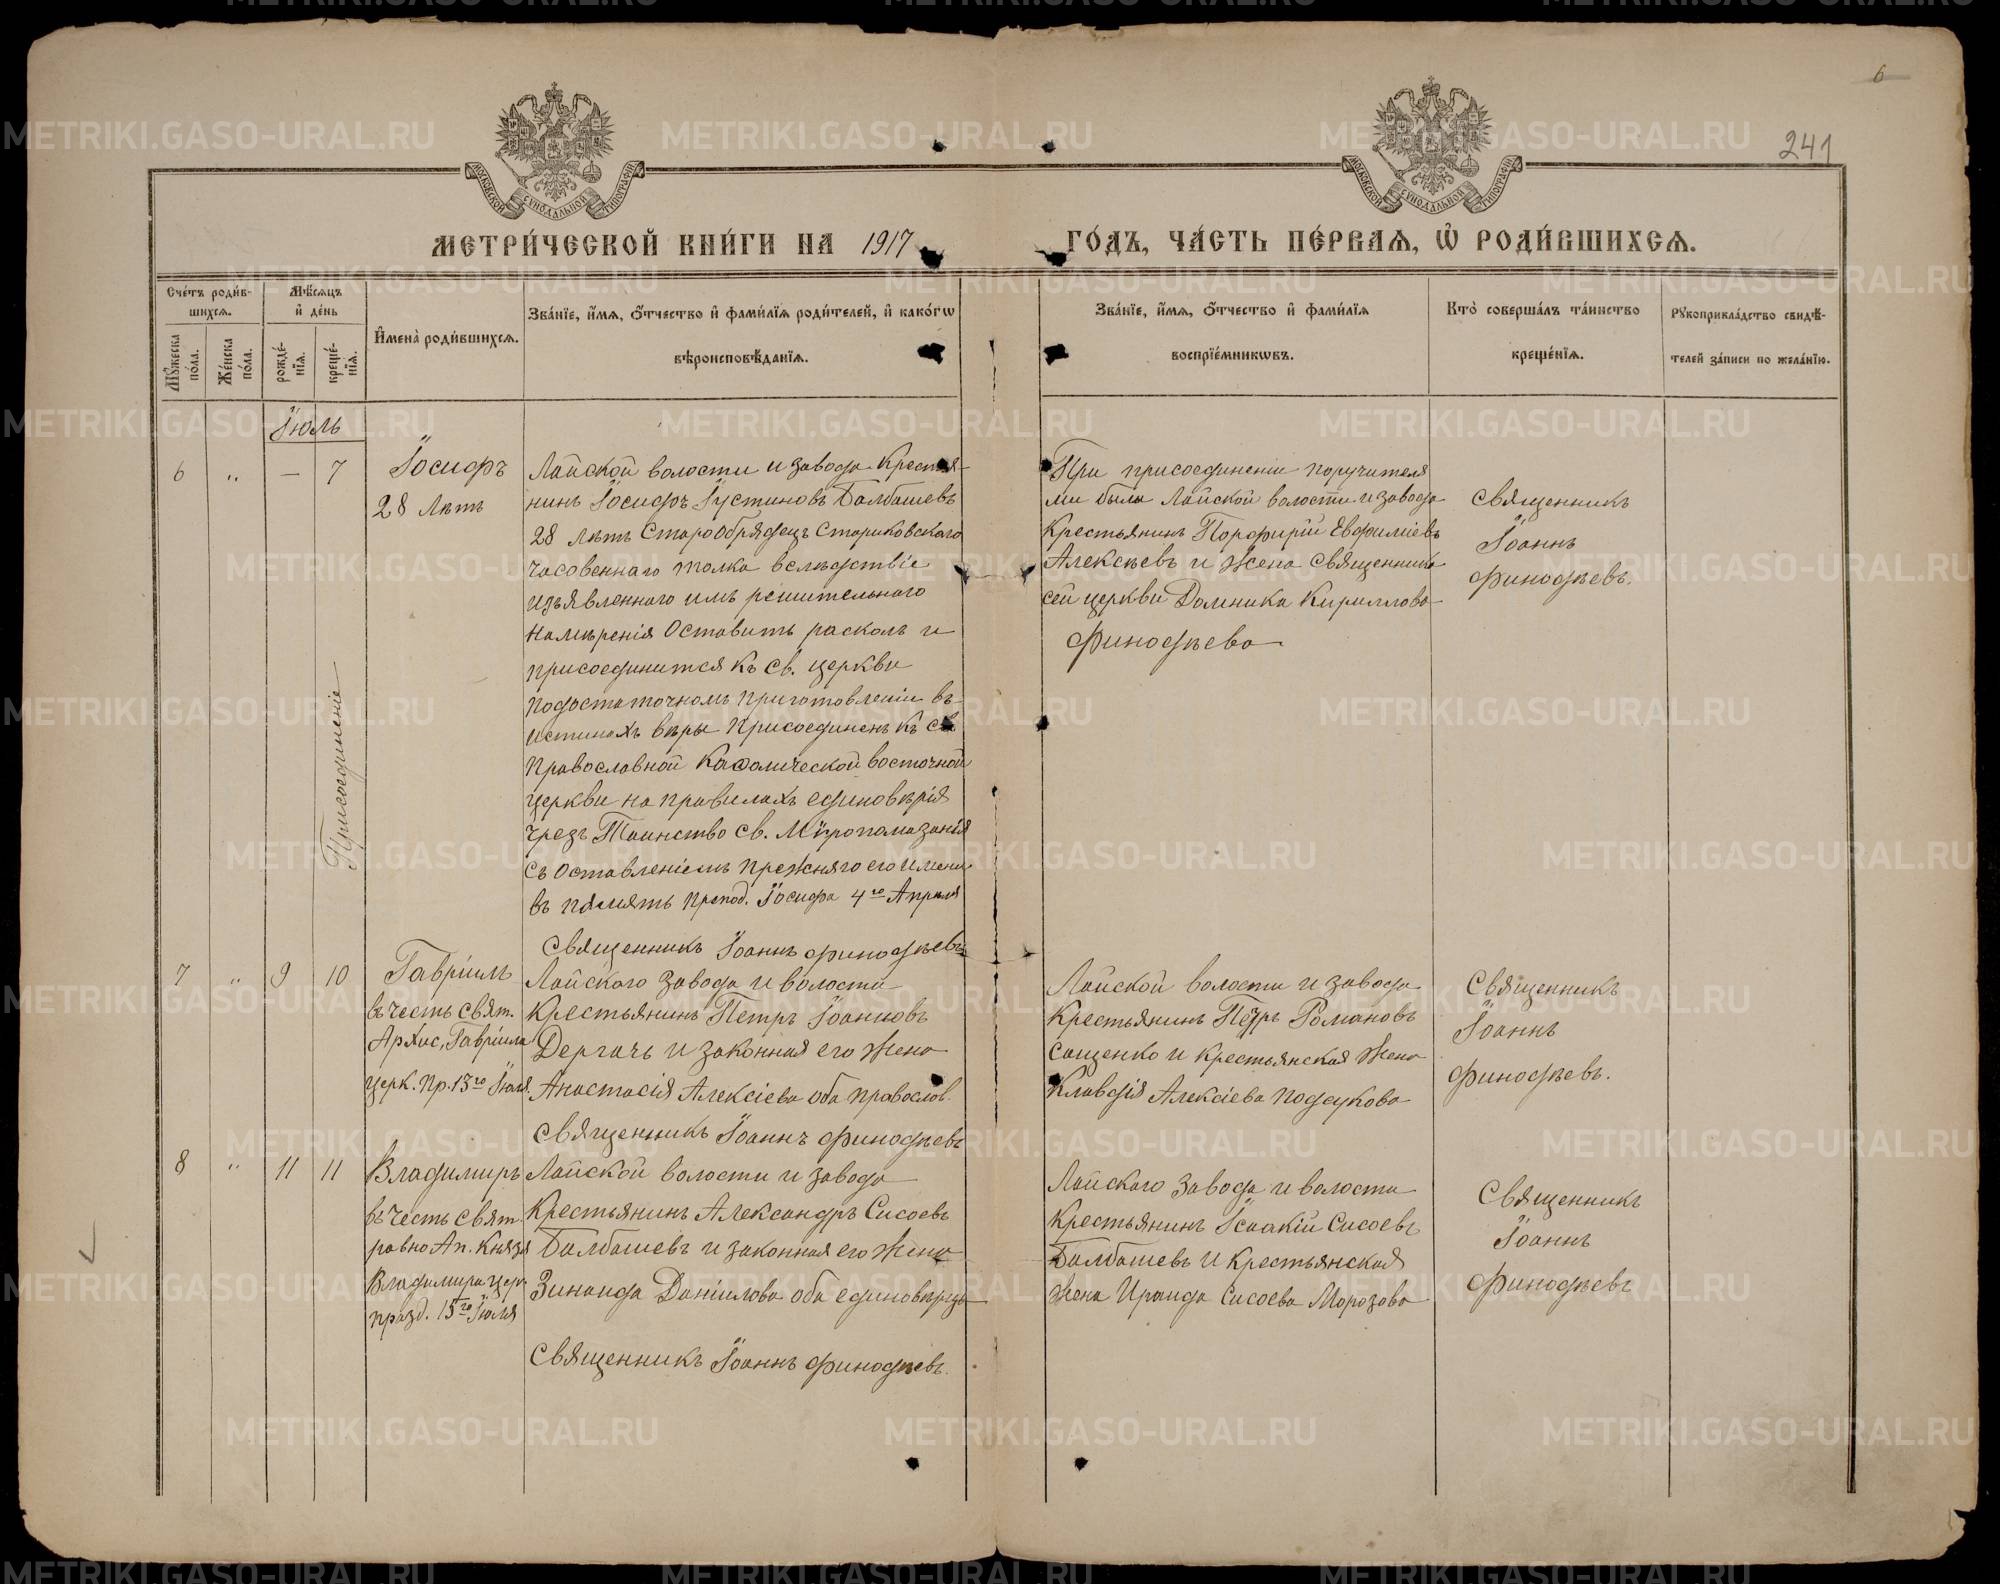 6
241
МЕТРИ́ЧЕСКОЙ КНИ́ГИ НА 1917 ГО́ДЪ, ЧА́СТЬ ПЕ́РВАЯ, Ѡ РОДИ́ВШИХСЯ.
МОСКОВСКОЙ СѴНОДАЛЬНОЙ ТИПОГРАФІИ
МОСКОВСКОЙ СѴНОДАЛЬНОЙ ТИПОГРАФІИ
Сче́тъ роди́в-
шихся.
Мѣ́сяцъ
и҆ де́нь
Мꙋ́жеска
по́ла.
Же́нска
по́ла.
рожде́-
нїя.
креще́-
нїя.
И҆мена̀ роди́вшихся.
Зва́нїе, и҆́мя, ѻ҆́тчество и҆ фами́лїя роди́телей, и҆ како́гѡ
вѣроисповѣ́данїя.
Зва́нїе, и҆́мя, ѻ҆́тчество и҆ фами́лїя
воспрїе́мникѡвъ.
Кто̀ соверша́лъ та́инство
креще́нїя.
Рꙋкоприкла́дство свидѣ́-
телей за́писи по жела́нїю.
Іюль
6 " — 7
Присоединеніе
Іосифъ
28 лѣтъ
Лайской волости и завода Крестья-
нинъ Іосифъ Іустиновъ Балбашевъ
28 лѣтъ Старообрядецъ Стариковскаго
часовеннаго толка вслѣдствіе
изъявленнаго имъ решительнаго
намѣренія Оставить расколъ и
присоединится къ св. церкви
подостаточномъ приготовленіи въ
истинахъ вѣры Присоединенъ къ св
Православной Каѳолической восточной
церкви на правилахъ единовѣрія
чрезъ Таинство св. Мѵропомазанія
съ Оставленіемъ прежняго его имени
въ память препод. Іосифа 4го Апреля
Священникъ Іоаннъ Финодѣевъ
При присоединеніи поручителя
ми были Лайской волости и завода
Крестьянинъ Порфирій Евфиміевъ
Алексѣевъ и жена Священника
сей церкви Домника Кириллова
Финодѣева
Священникъ
Іоаннъ
Финодѣевъ.
7 " 9 10
Гавріилъ
въ честь свят.
Архис. Гавріила
церк. пр. 13го Іюля
Лайскаго завода и волости
Крестьянинъ Петръ Іоанновъ
Дергачъ и законная его жена
Анастасія Алексіева оба православ.
Священникъ Іоаннъ Финодѣевъ
Лайской волости и завода
Крестьянинъ Петръ Романовъ
Сащенко и крестьянская жена
Клавдія Алексіева Подсукова
Священникъ
Іоаннъ
Финодѣевъ.
8 " 11 11
Владимиръ
въ честь свят.
равно Ап. Князя
Владимира цер.
празд. 15го Іюля
Лайской волости и завода
Крестьянинъ Александръ Сисоевъ
Балбашевъ и законная его жена
Зинаида Даніилова оба единовѣрцы
Священникъ Іоаннъ Финодѣевъ.
Лайскаго завода и волости
Крестьянинъ Ісаакій Сисоевъ
Балбашевъ и крестьянская
жена Ираида Сисоева Морозова
Священникъ
Іоаннъ
Финодѣевъ
METRIKI.GASO-URAL.RU